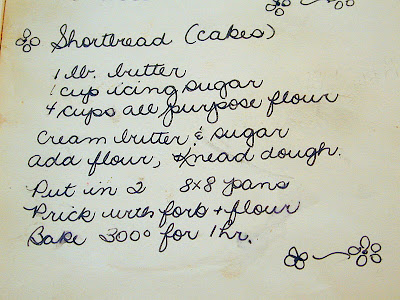 Shortbread (cakes)
1 lb. butter
1 cup icing sugar
4 cups all purpose flour
Cream butter & sugar
add flour, knead dough.
Put in 2 8x8 pans
Prick with fork + flour
Bake 300° for 1 hr.